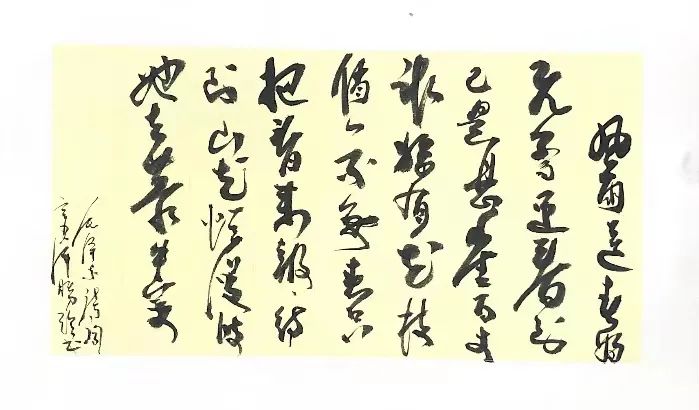 风雨送春归
飞雪迎春到
已是悬崖百丈
冰犹有花枝
俏俏不争春只
把春来报待
到山花烂漫时
她在丛中笑
毛泽东诗词
书